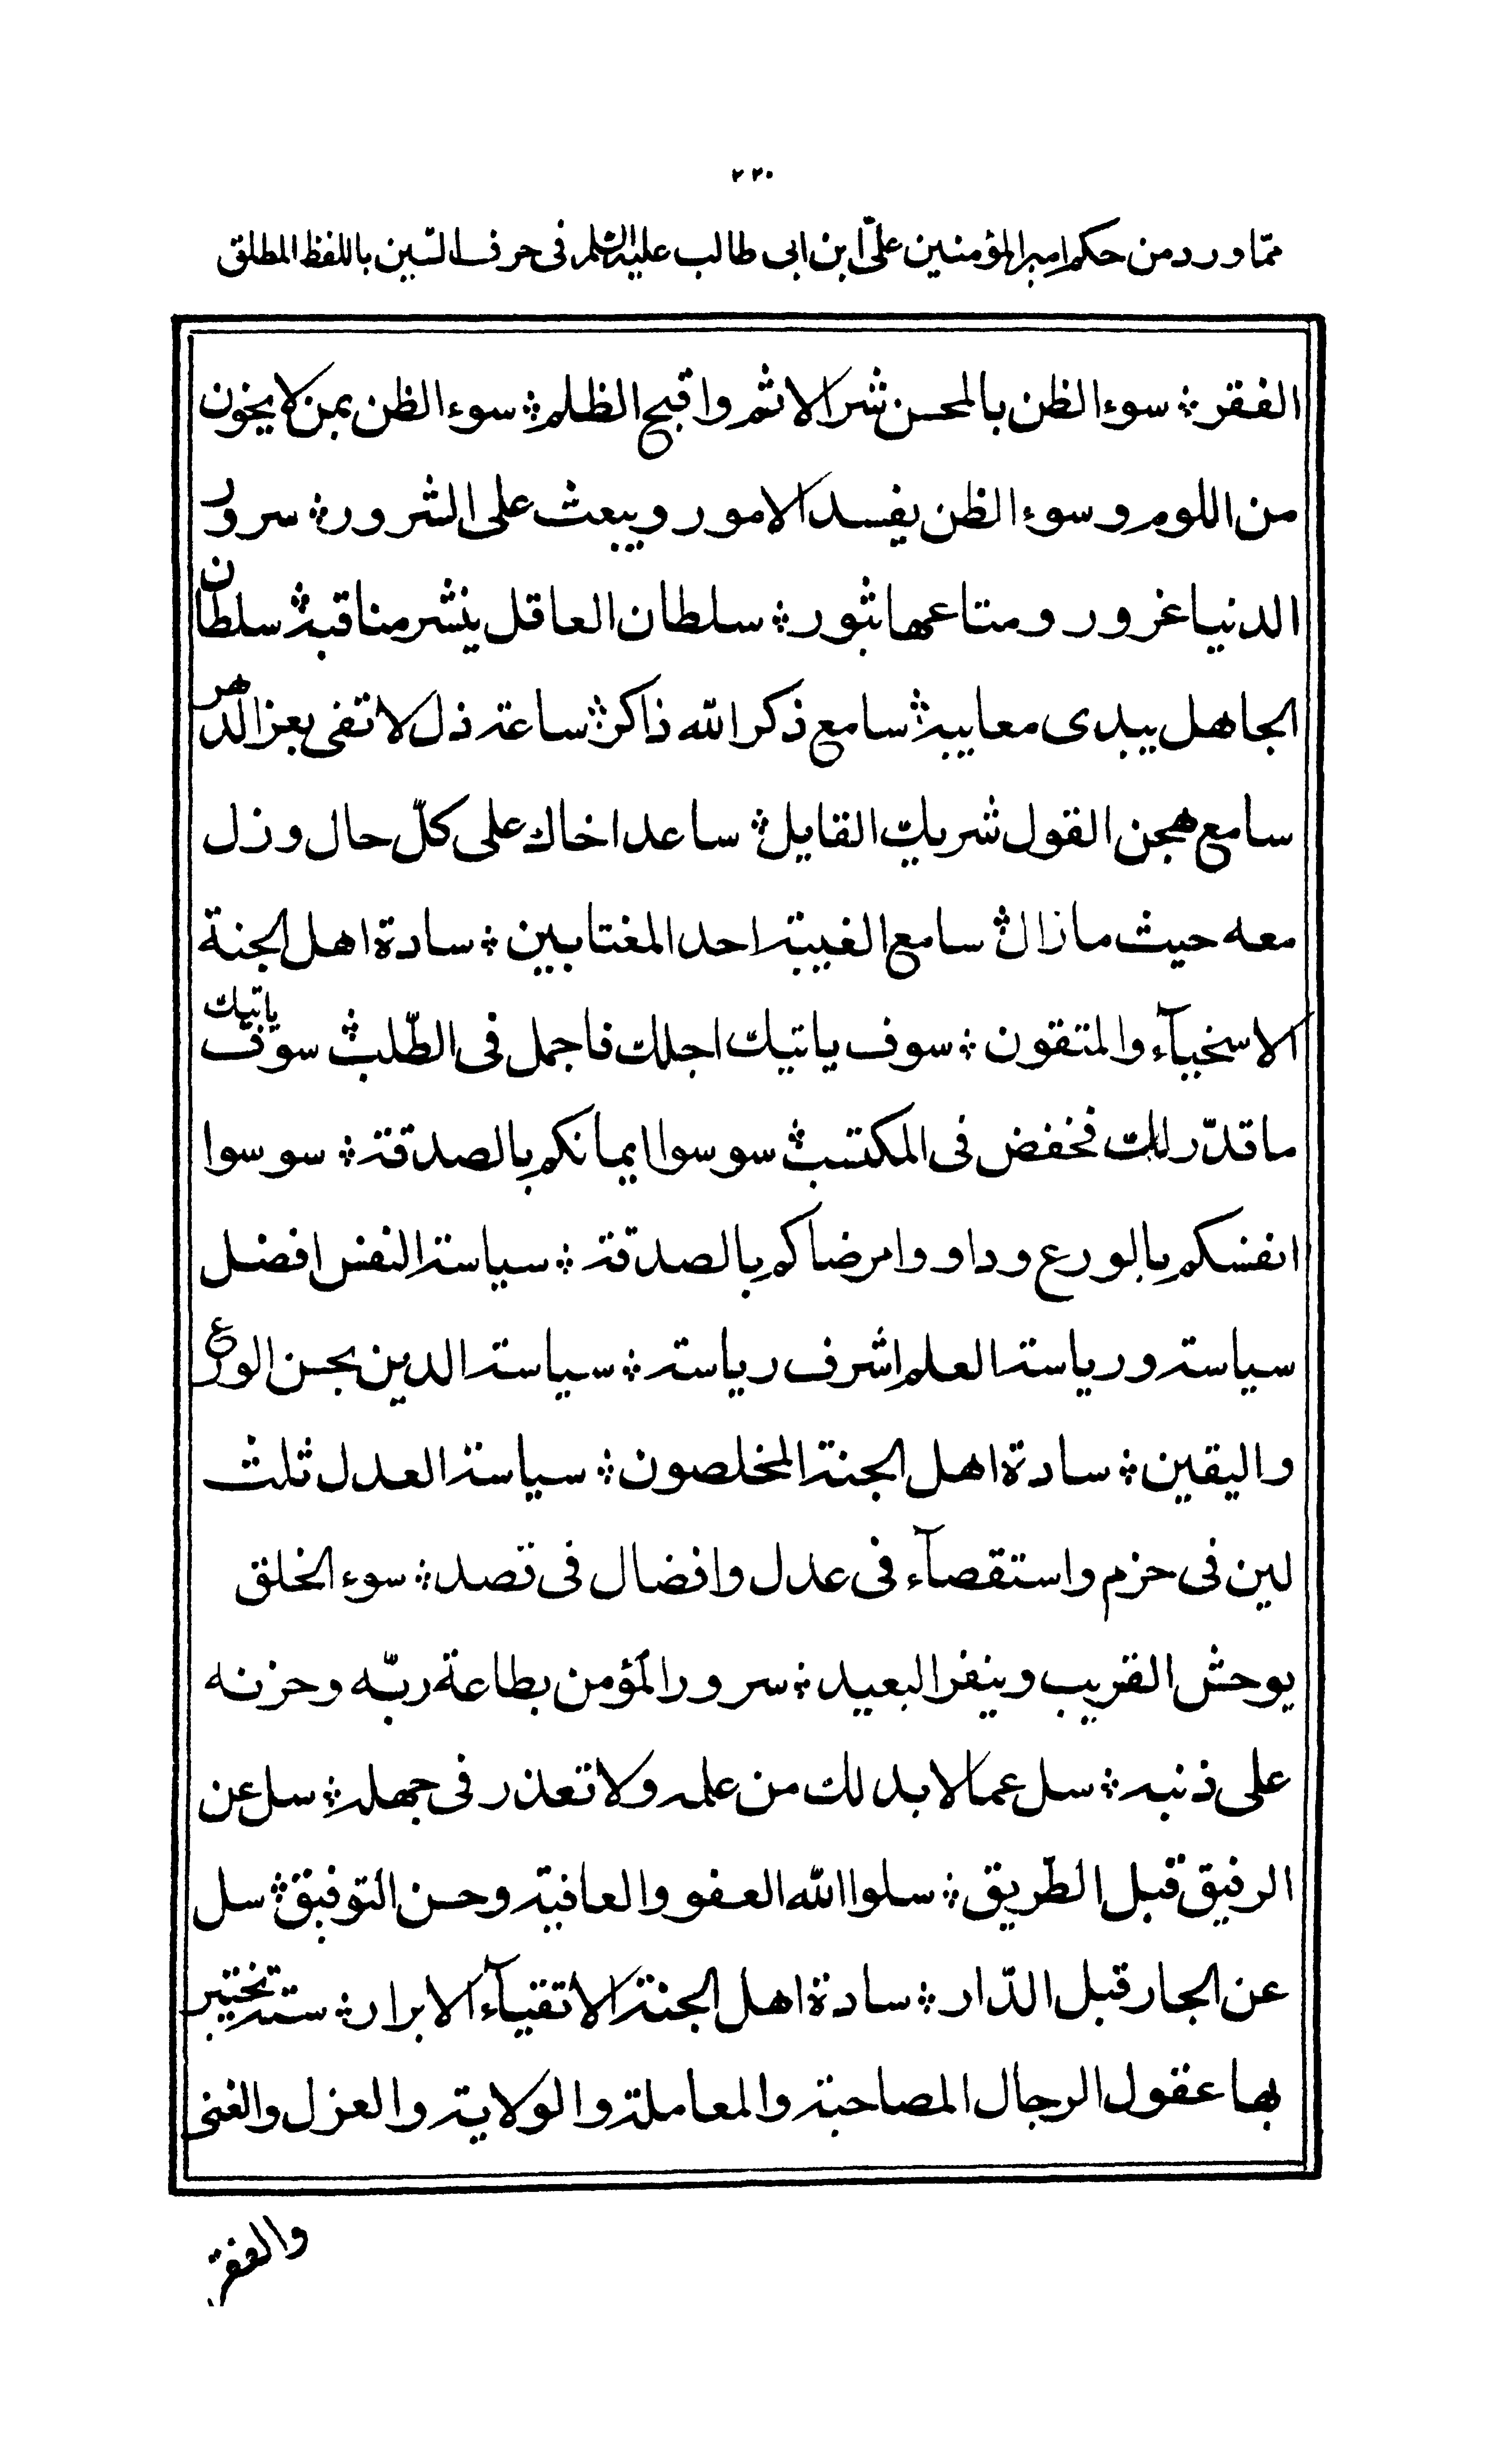 ٢٢٠
ممّا ورد من حكم امير المؤمنين علىّ ابن ابى طالب عليه السّلم فى حرف السّين باللفظ المطلق
الفقر ؞ سوء الظن بالمحسن شر الاثم واقبح الظلم ؞ سوء الظن بمن لا يخون
من اللوم وسوء الظن يفسد الامور ويبعث على الشرور ؞ سرور
الدنيا غرور ومتاعها ثبور ؞ سلطان العاقل ينشر مناقبه ؞ سلطان
الجاهل يبدى معايبه ؞ سامع ذكر الله ذاكر ؞ ساعة ذل لا تفى بعز الدّهر
سامع هجن القول شريك القايل ؞ ساعد اخاك على كلّ حال وزل
معه حيث ما زال ؞ سامع الغيبة احد المغتابين ؞ سادة اهل الجنة
الاسخيآء والمتقون ؞ سوف ياتيك اجلك فاجمل فى الطّلب ؞ سوف ياتيك
ما قدّر لك فخفض فى المكتسب ؞ سوسوا ايمانكم بالصدقة ؞ سوسوا
انفسكم بالورع وداووا مرضاكم بالصدقة ؞ سياسة النفس افضل
سياسة ورياسة العلم اشرف رياسة ؞ سياسة الدين بحسن الورع
واليقين ؞ سادة اهل الجنة المخلصون ؞ سياسة العدل ثلث
لين فى حزم واستقصآء فى عدل وافضال فى قصد ؞ سوء الخلق
يوحش القريب وينفر البعيد ؞ سرور المؤمن بطاعة ربّه وحزنه
على ذنبه ؞ سل عما لا بد لك من علمه ولا تعذر فى جهله ؞ سل عن
الرفيق قبل الطّريق ؞ سلوا الله العفو والعافية وحسن التوفيق ؞ سل
عن الجار قبل الدّار ؞ سادة اهل الجنة الاتقيآء الابرار ؞ ستة تختبر
بها عقول الرجال المصاحبة والمعاملة والولاية والعزل والغنى
والفقر